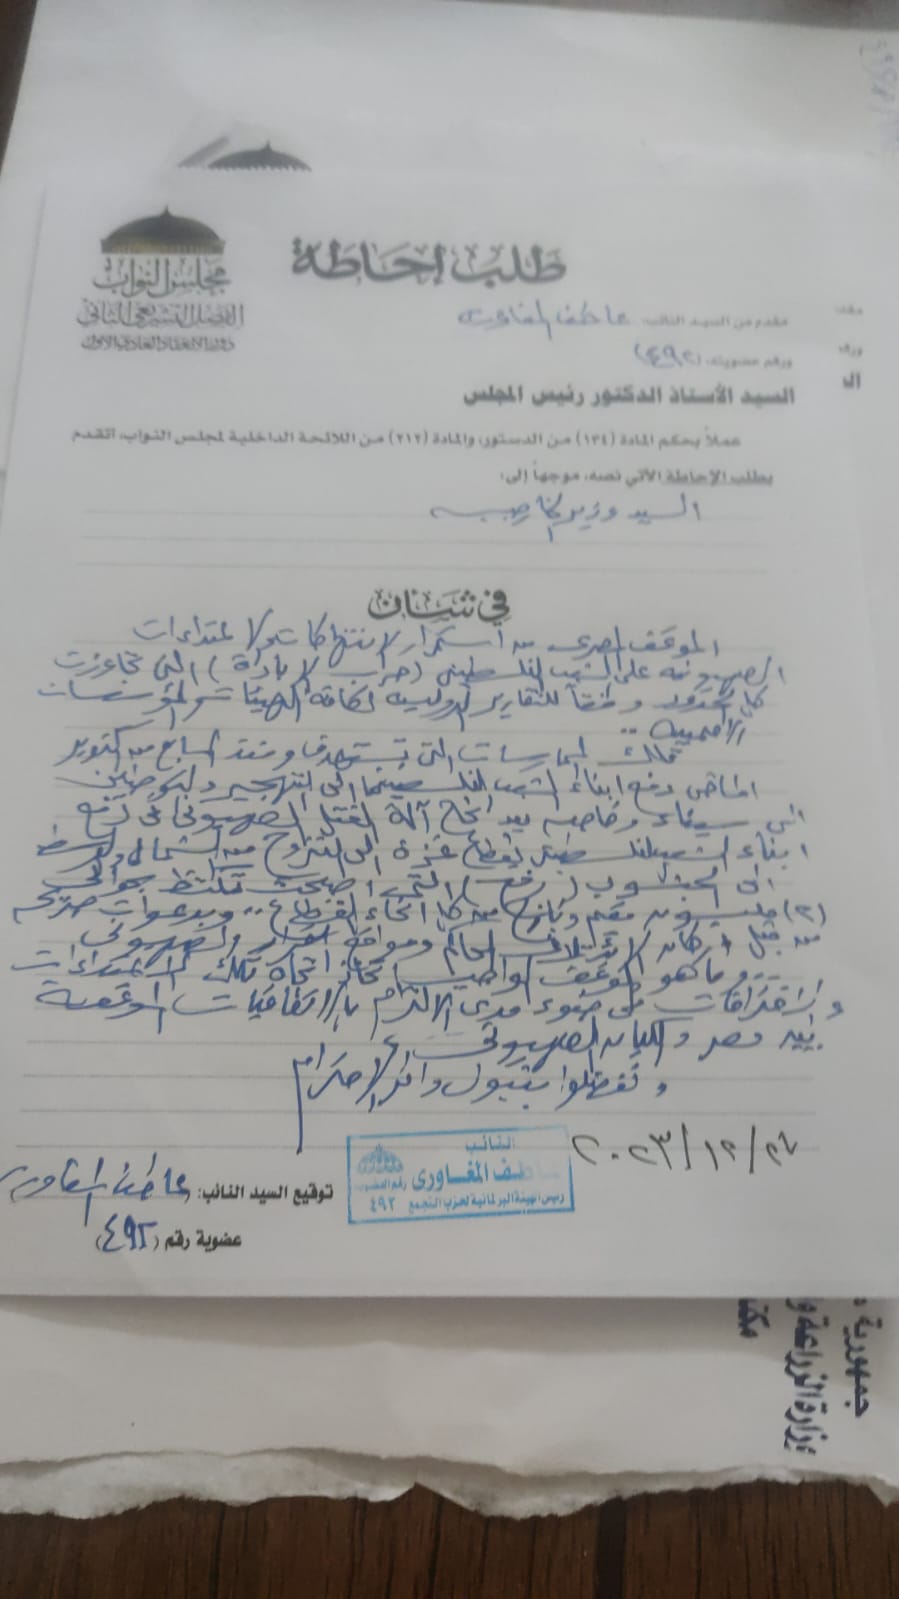 طلب إحاطة
مجلس النواب
الفصل التشريعي الثاني
دور الانعقاد العادي الأول
مقدم من السيد النائب: عاطف المغاورى
ورقم عضويته: (٤٩٢)
السيد الأستاذ الدكتور رئيس المجلس
عملاً بحكم المادة (١٣٤) من الدستور، والمادة (٢١٢) من اللائحة الداخلية لمجلس النواب، أتقدم
بطلب الإحاطة الآتي نصه، موجهاً إلى:
السيد وزير الخارجية
في شأن
الموقف المصرى من استمرار الانتهاكات والاعتداءات
الصهيونية على الشعب الفلسطينى (حرب الإبادة) التى تجاوزت
كل الحدود وفقاً للتقارير الدولية لكافة الهيئات والمؤسسات
الأممية ..
تلك الممارسات التى تستهدف ومنذ السابع من أكتوبر
الماضى دفع أبناء الشعب الفلسطينى إلى التهجير
إلى سيناء وخاصة بعد نجاح آلة القتل الصهيونى فى دفع
أبناء الشعب الفلسطينى بقطاع غزة إلى النزوح من الشمال والوسط
إلى الجنوب (رفح) التى أصبحت تكتظ بحوالى
(٢) مليون مقيم ونازح من كل أنحاء القطاع .. وبدعوات صريحة
من قبل أركان الائتلاف الحاكم
وما هو الموقف تجاه تلك الاعتداءات
والاختراقات فى ضوء مدى الالتزام بالاتفاقيات الموقعة
بين مصر والكيان الصهيونى
وتفضلوا بقبول وافر الاحترام
٢٠٢٣/١٢/
النائب
عاطف المغاورى
رقم العضوية
رئيس الهيئة البرلمانية لحزب التجمع ٤٩٢
توقيع السيد النائب: عاطف المغاورى
عضوية رقم (٤٩٢)
جمهورية
وزارة الزراعة
مكتب